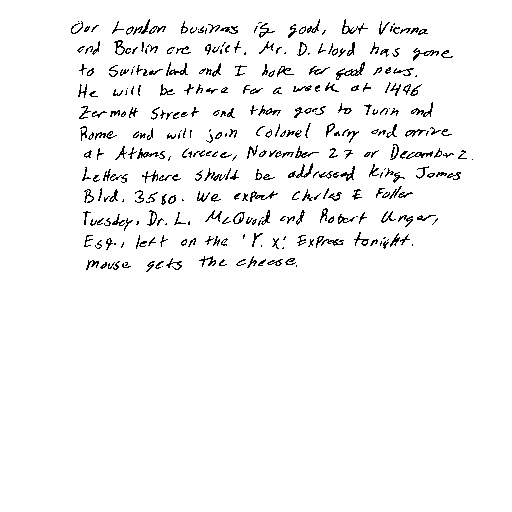 Our London business is good, but Vienna
and Berlin are quiet. Mr. D. Lloyd has gone
to Switzerland and I hope for good news.
He will be there for a week at 1496
Zermott Street and than goes to Turin and
Rome and will join Colonel Parry and arrive
at Athens, Greece, November 27 or December 2.
Letters there should be addressed King James
Blvd. 3580. We expect Charles E Fuller
Tuesday. Dr. L. McQuaid and Robert Unger,
Esq., left on the 'Y. X.' Express tonight.
mouse gets the cheese.